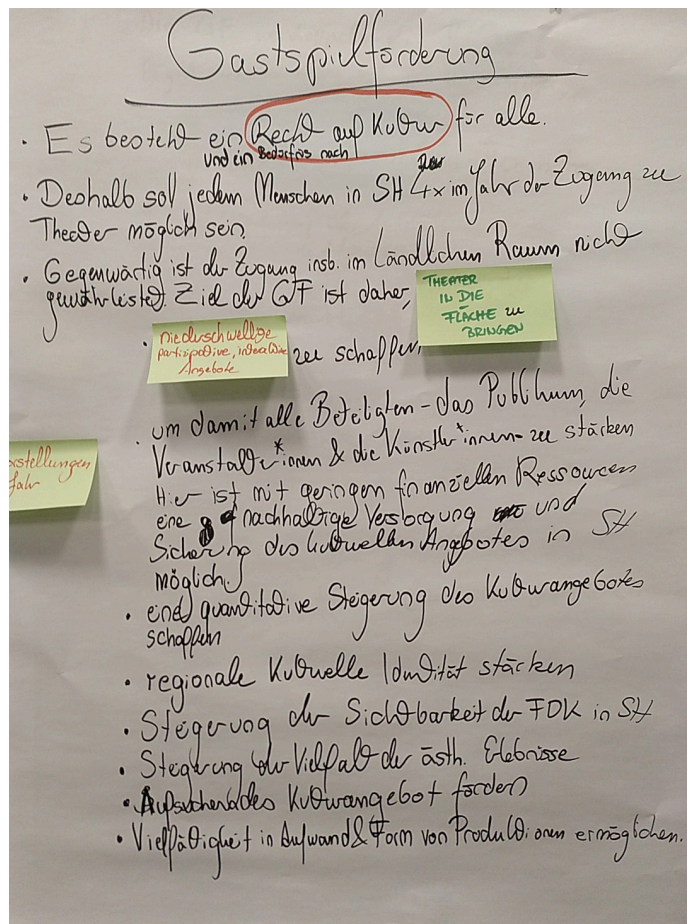 Gastspielförderung
• Es besteht ein Recht auf Kultur für alle.
und ein Bedürfnis nach
• Deshalb soll jedem Menschen in SH 4x im Jahr der Zugang zu
Theater möglich sein.
• Gegenwärtig ist der Zugang insb. im Ländlichen Raum nicht
gewährleistet. Ziel der GF ist daher,
THEATER
IN DIE
FLÄCHE zu
BRINGEN
• niederschwellige
partizipative, interaktive
Angebote
zu schaffen,
• um damit alle Beteiligten - das Publikum, die
Veranstalter*innen & die Künstler*innen - zu stärken
Hier ist mit geringen finanziellen Ressourcen
eine nachhaltige Versorgung und
Sicherung des kulturellen Angebotes in SH
möglich.
orstellungen
Jahr
• eine quantitative Steigerung des Kulturangebotes
schaffen
• regionale Kulturelle Identität stärken
• Steigerung der Sichtbarkeit der FDK in SH
• Steigerung der Vielfalt der ästh. Erlebnisse
• Aufsuchendes Kulturangebot fördern
• Vielfältigkeit in Aufwand & Form von Produktionen ermöglichen.